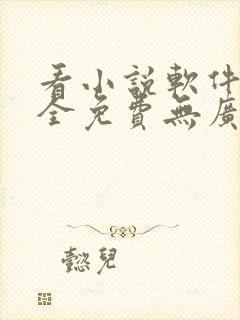 看小說軟件
全免費無廣
懿兒